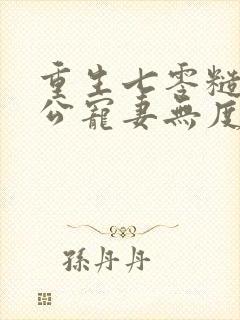 重生七零糙
公寵妻無度
孫丹丹